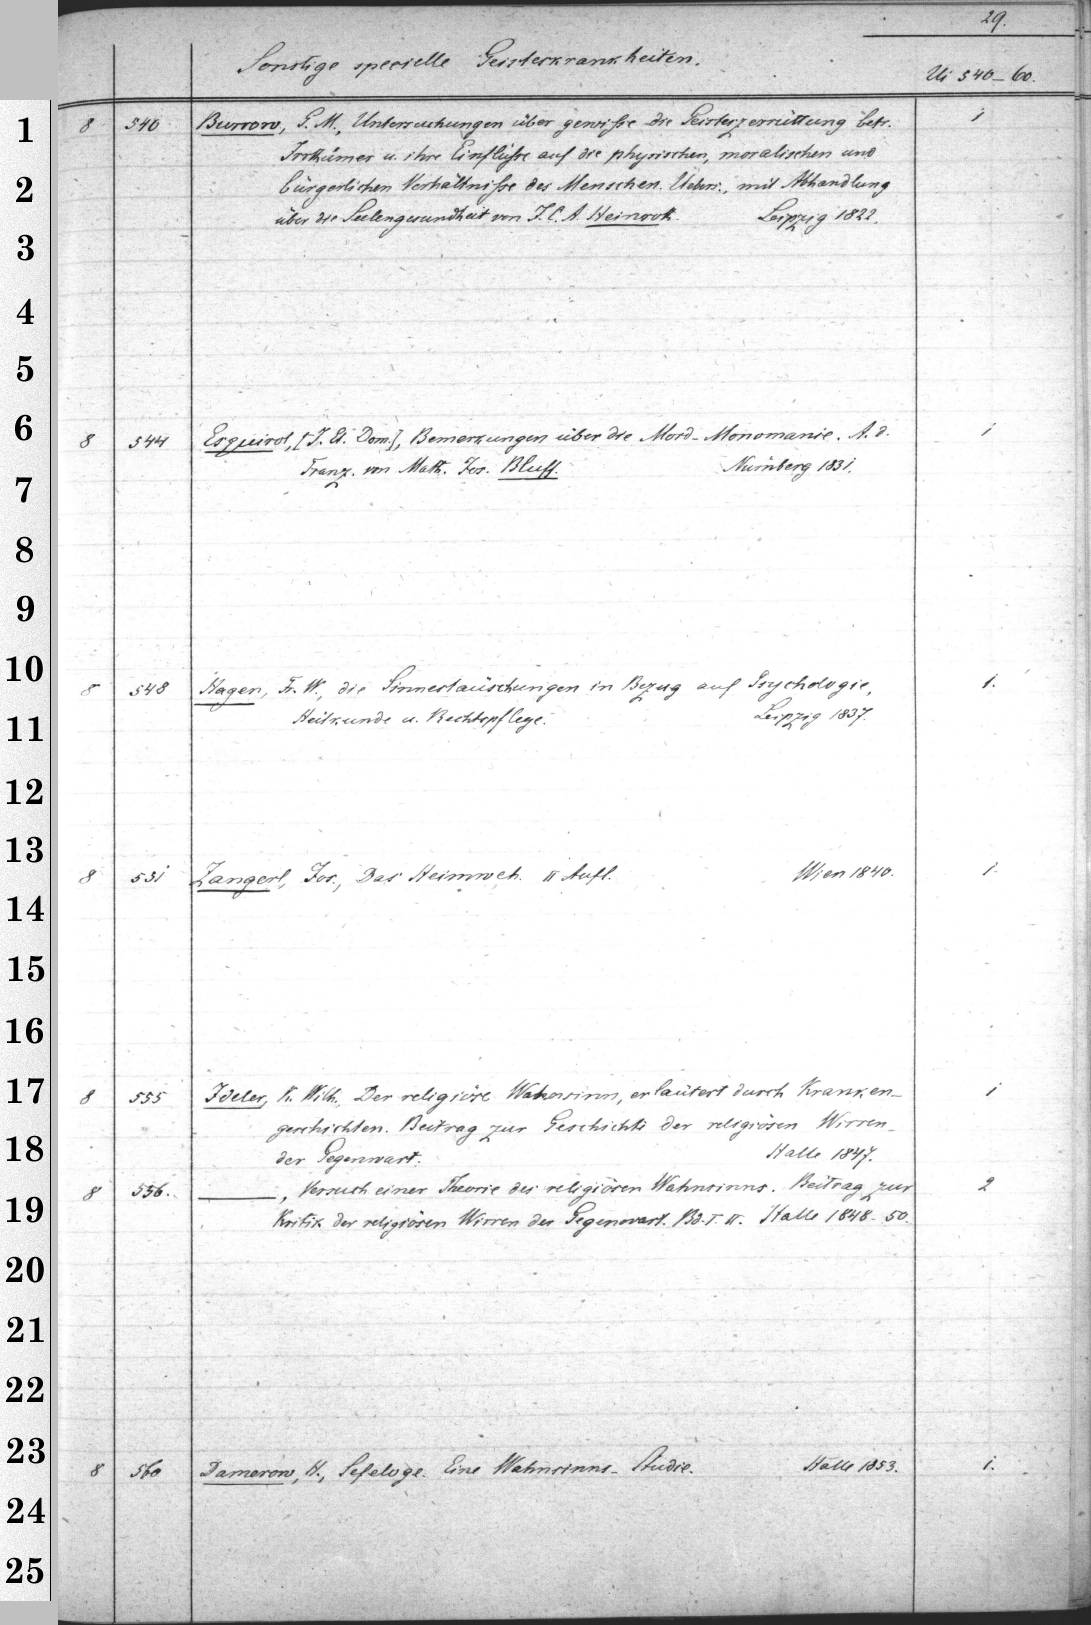 29.
Sonstige specielle Geisteskrankheiten.
Ui 540-60.
1
8 540 Burrow, G. M., Untersuchungen über gewisse die Geisteszerrüttung betr. 1
Irrthümer u. ihre Einflüsse auf die physischen, moralischen und
2
bürgerlichen Verhältnisse des Menschen. Uebers., mit Abhandlung
über die Seelengesundheit von J. C. A. Heinroth. Leipzig 1822.
3
4
5
6
8 544 Esquirol, [J. Et. Dom.], Bemerkungen über die Mord-Monomanie. A. d. 1
Franz. von Math. Jos. Bluff. Nürnberg 1831.
7
8
9
10
8 548 Hagen, Fr. W., die Sinnestäuschungen in Bezug auf Psychologie, 1.
Heilkunde u. Rechtspflege. Leipzig 1837.
11
12
13
8 551 Zangerl, Jos., Das Heimweh. II Aufl. Wien 1840. 1.
14
15
16
17
8 555 Ideler, K. Wilh., Der religiöse Wahnsinn, erläutert durch Kranken- 1
geschichten. Beitrag zur Geschichte der religiösen Wirren
18
der Gegenwart. Halle 1847.
8 556. ———, Versuch einer Theorie des religiösen Wahnsinns. Beitrag zur 2
19
Kritik der religiösen Wirren der Gegenwart. Bd. I. II. Halle 1848-50.
20
21
22
23
8 560 Damerow, H., Sefeloge. Eine Wahnsinns-Studie. Halle 1853. 1.
24
25